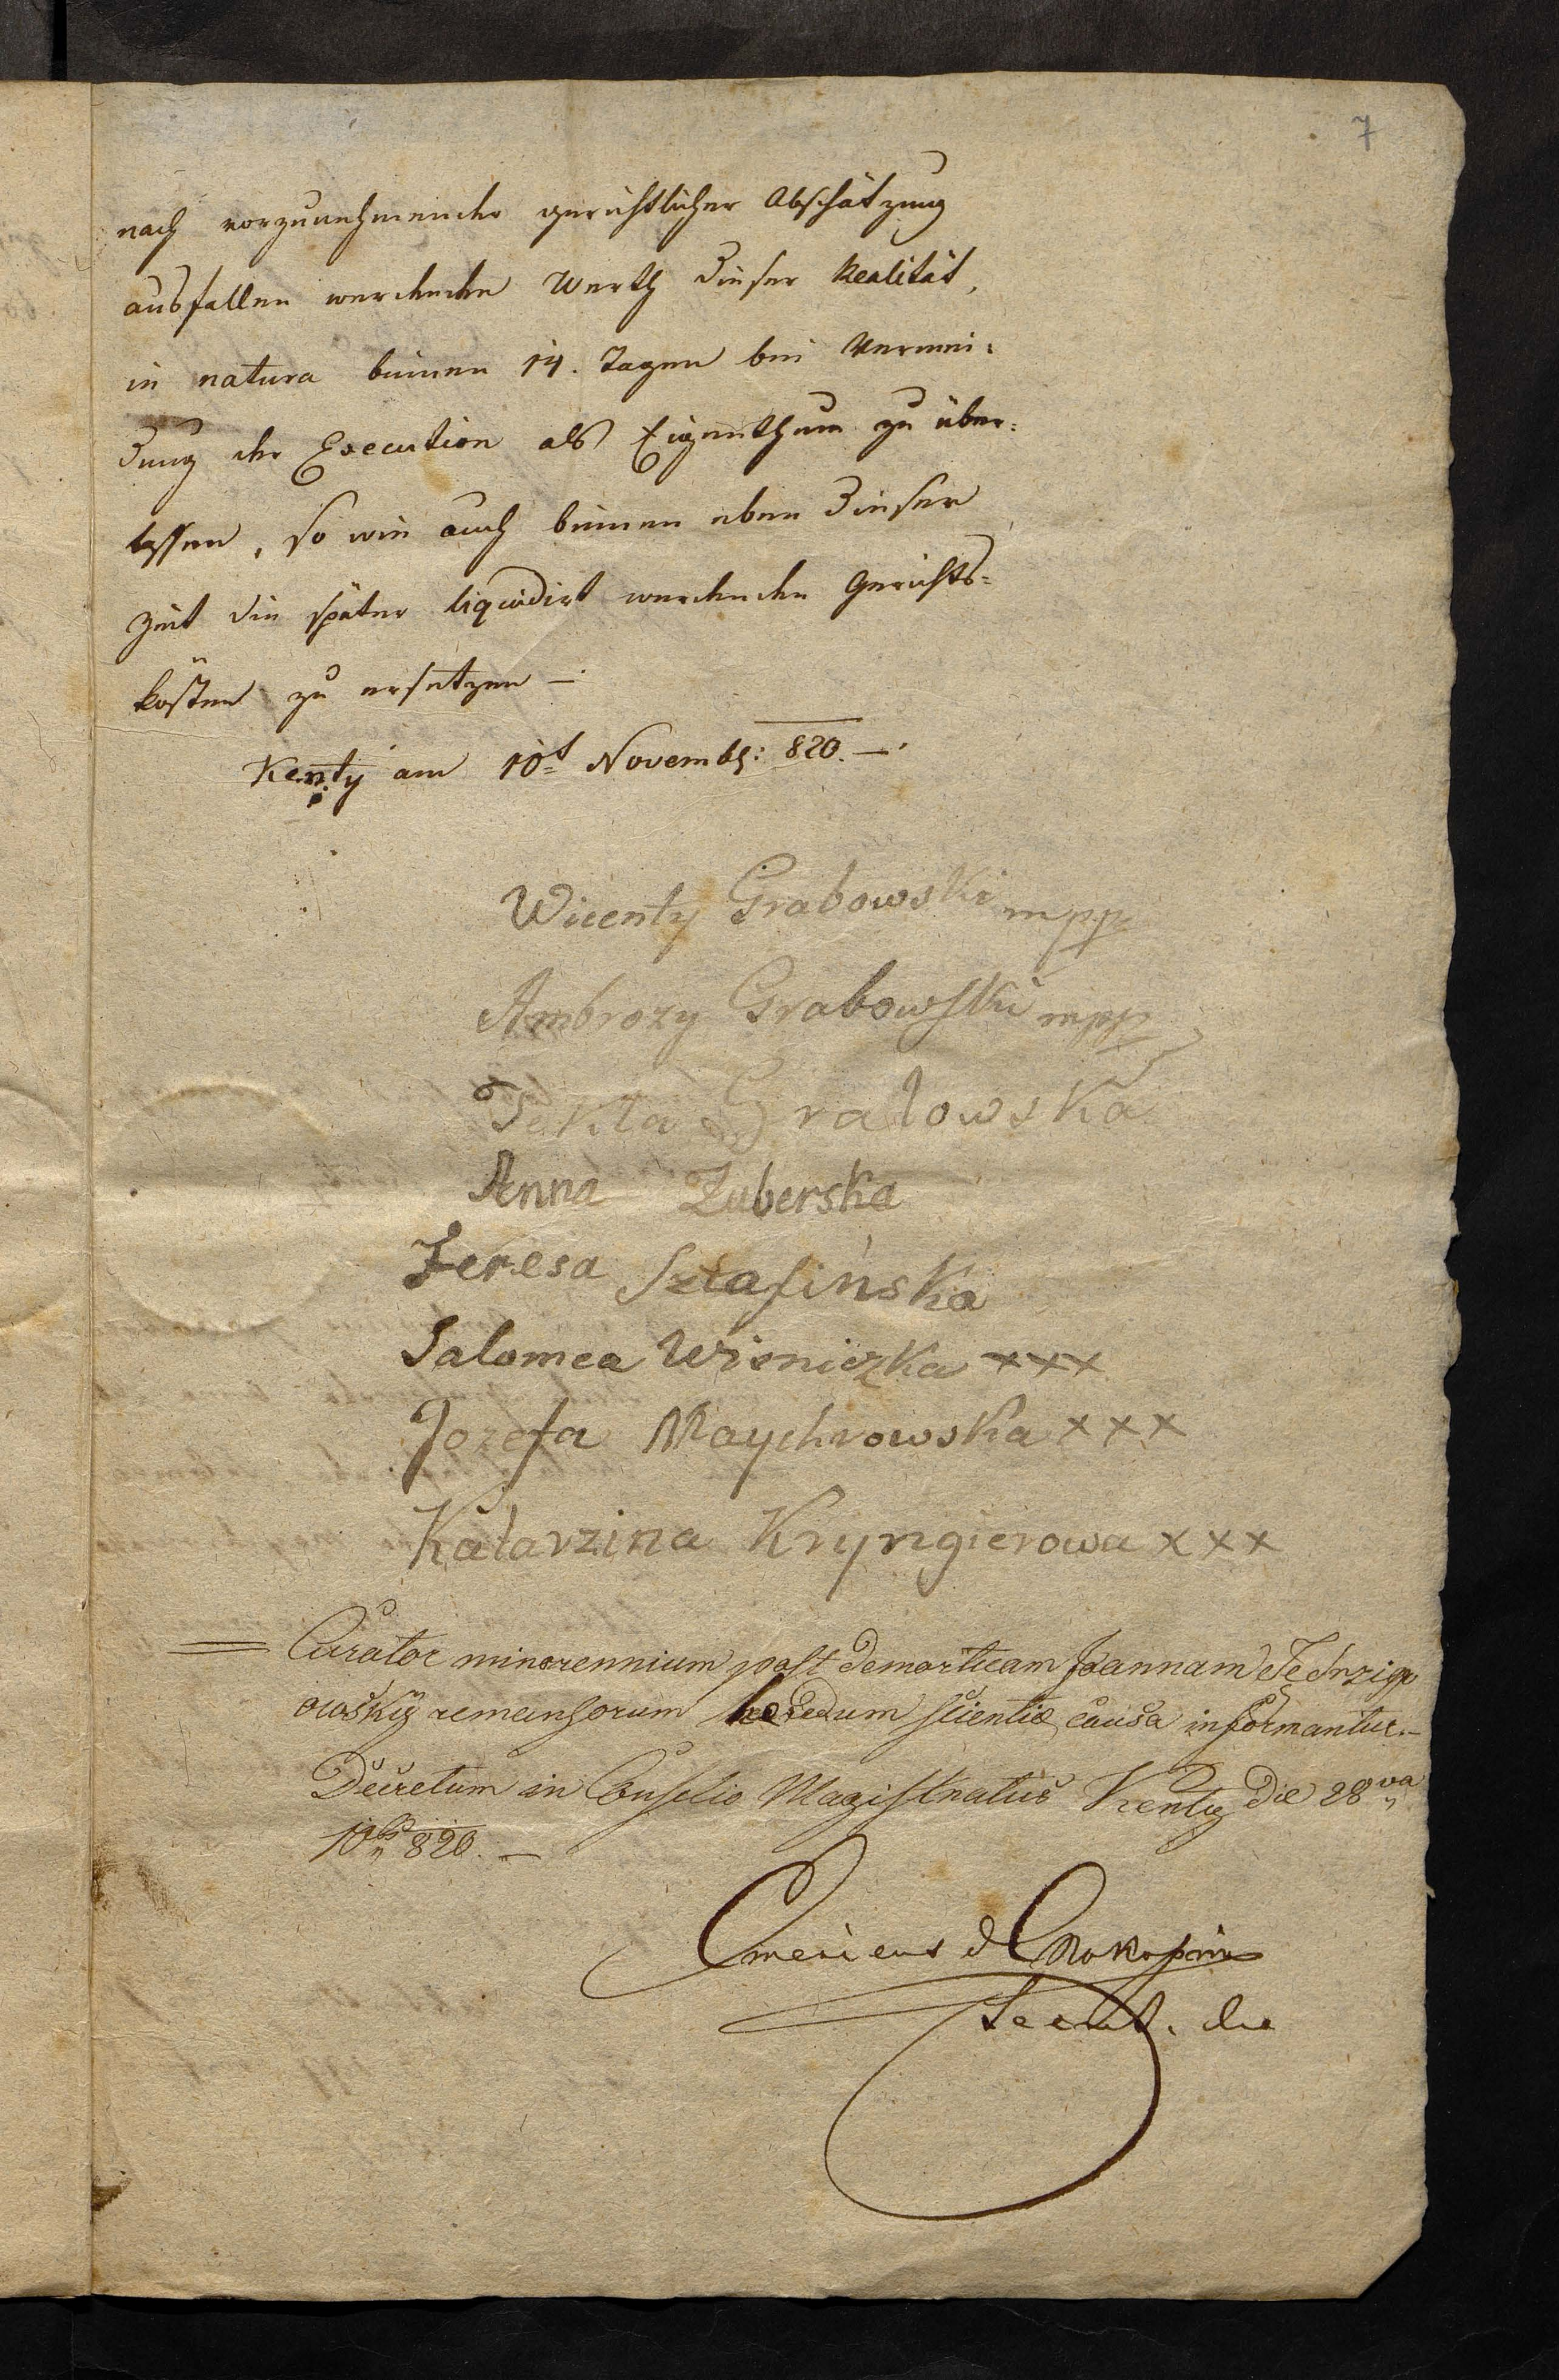 7
nach vorzunehmender gerichtlicher Abschätzung
ausfallen werdenden Werth dieser Realität,
in natura binnen 14. Tagen bei Vermei-
dung der Execution als Eigenthum zu über-
lassen, so wie auch binnen eben dieser
Zeit die später liquidirt werdenden Gerichts-
kösten zu ersetzen —
Kenty am 10t Novembr: 820. —
Wicenty Grabowski mpp
Ambrozy Grabowski mpp
Tekla Grabowska
Anna Zuberska
Teresa Szlafińska
Salomea Wisniczka xxx
Jozefa Maychrowska xxx
Katarzina Kryngierowa xxx
Curator minorennium post demortuam Joannam
owsky remansorum heredum scientiæ causa informantur. —
Decretum in Consilio Magistratus Kenty die 28va
10bris 820. —